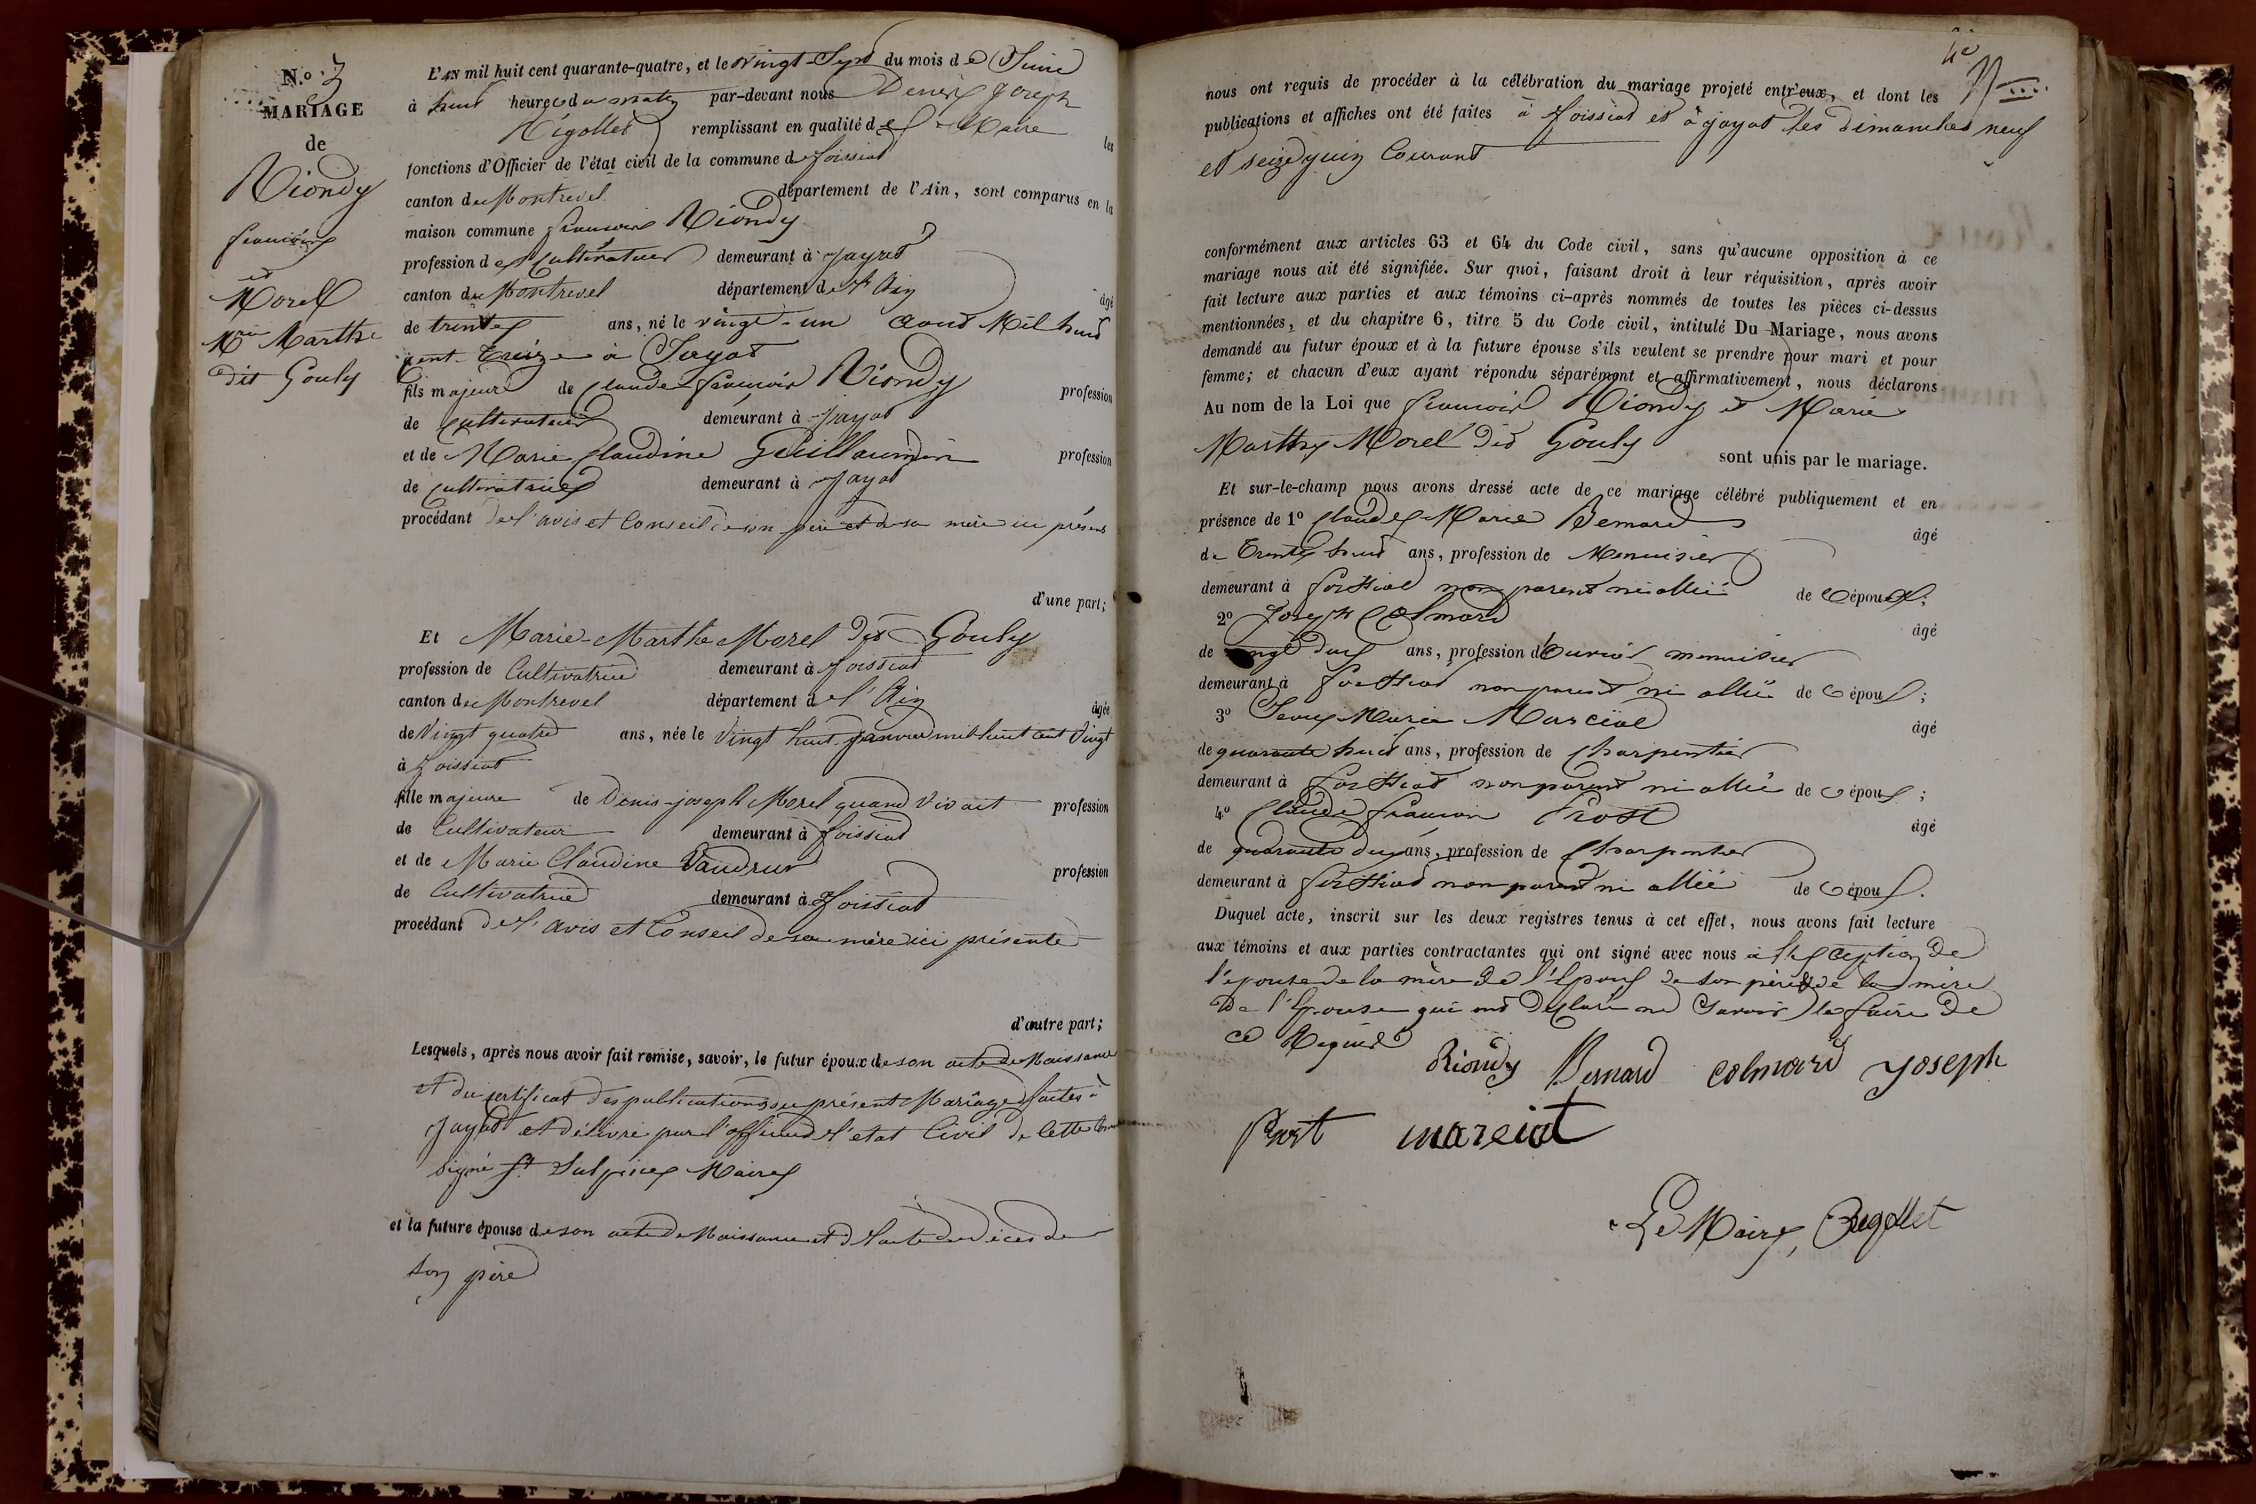 N.º 3
MARIAGE
de
Riondy
françois
et
Morel
Mie Marthe
dit Gouly
L'AN mil huit cent quarante-quatre, et le vingt-Sept du mois de Juin
à huit heures du matin par-devant nous Denis Joseph
remplissant en qualité de Maire les
fonctions d'Officier de l'état civil de la commune de foissiat
canton de Montrevel département de l'Ain, sont comparus en la
maison commune françois Riondy
profession de Cultivateur demeurant à Jayat
canton de Montrevel département de l'Ain âgé
de trente ans, né le vingt-un aout Mil huit
cent treize à Jayat
fils majeur de Claude françois Riondy profession
de Cultivateur demeurant à Jayat
et de Marie Claudine Guillaumin profession
de cultivatrice demeurant à Jayat
procédant de l'avis et Conseil de son père et de sa mère ici présens
d'une part;
Et Marie-Marthe Morel dit Gouly
profession de Cultivatrice demeurant à foissiat
canton de Montrevel département de l'Ain âgée
de Vingt quatre ans, née le Vingt huit janvier mil huit cent Vingt
à foissiat
fille majeure de Denis-joseph Morel quand Vivait profession
de Cultivateur demeurant à foissiat
et de Marie Claudine profession
de Cultivatrice demeurant à foissiat
procédant de l'avis et Conseil de sa mère ici présente
d'autre part;
Lesquels, après nous avoir fait remise, savoir, le futur époux de son acte de Naissance
et du certificat des publications du présent Mariage faites à
Jayat et délivré par l'officier de l'état Civil de Cette
signé St Sulpice Maire
et la future épouse de son acte de Naissance et de l'acte de décès de
son père
nous ont requis de procéder à la célébration du mariage projeté entr'eux, et dont les
publications et affiches ont été faites à foissiat et à jayat les dimanches neuf
et seize juin Courant
conformément aux articles 63 et 64 du Code civil, sans qu'aucune opposition à ce
mariage nous ait été signifiée. Sur quoi, faisant droit à leur réquisition, après avoir
fait lecture aux parties et aux témoins ci-après nommés de toutes les pièces ci-dessus
mentionnées, et du chapitre 6, titre 5 du Code civil, intitulé Du Mariage, nous avons
demandé au futur époux et à la future épouse s'ils veulent se prendre pour mari et pour
femme; et chacun d'eux ayant répondu séparément et affirmativement, nous déclarons
Au nom de la Loi que françois Riondy et Marie
Marthe Morel dit Gouly sont unis par le mariage.
Et sur-le-champ nous avons dressé acte de ce mariage célébré publiquement et en
présence de 1º Claude Marie Bernard âgé
de Trente huit ans, profession de Menuisier
demeurant à foissiat non parent ni allié de l'époux;
2º Joseph Colmard âgé
de vingt deux ans, profession d'Ouvrier menuisier
demeurant à foissiat non parent ni allié de l'époux;
3º Jean Marie Marciat âgé
de quarante huit ans, profession de Charpentier
demeurant à foissiat non parent ni allié de l'époux;
4º Claude françois Prost âgé
de quarante deux ans, profession de Charpentier
demeurant à foissiat non parent ni allié de l'époux.
Duquel acte, inscrit sur les deux registres tenus à cet effet, nous avons fait lecture
aux témoins et aux parties contractantes qui ont signé avec nous à l'exception de
l'épouse de la mère de l'Epoux de son père et de la mère
de l'Epouse qui ont déclaré ne savoir le faire de
ce Requis
Riondy Bernard colmard joseph
Prost marciat
Le Maire,